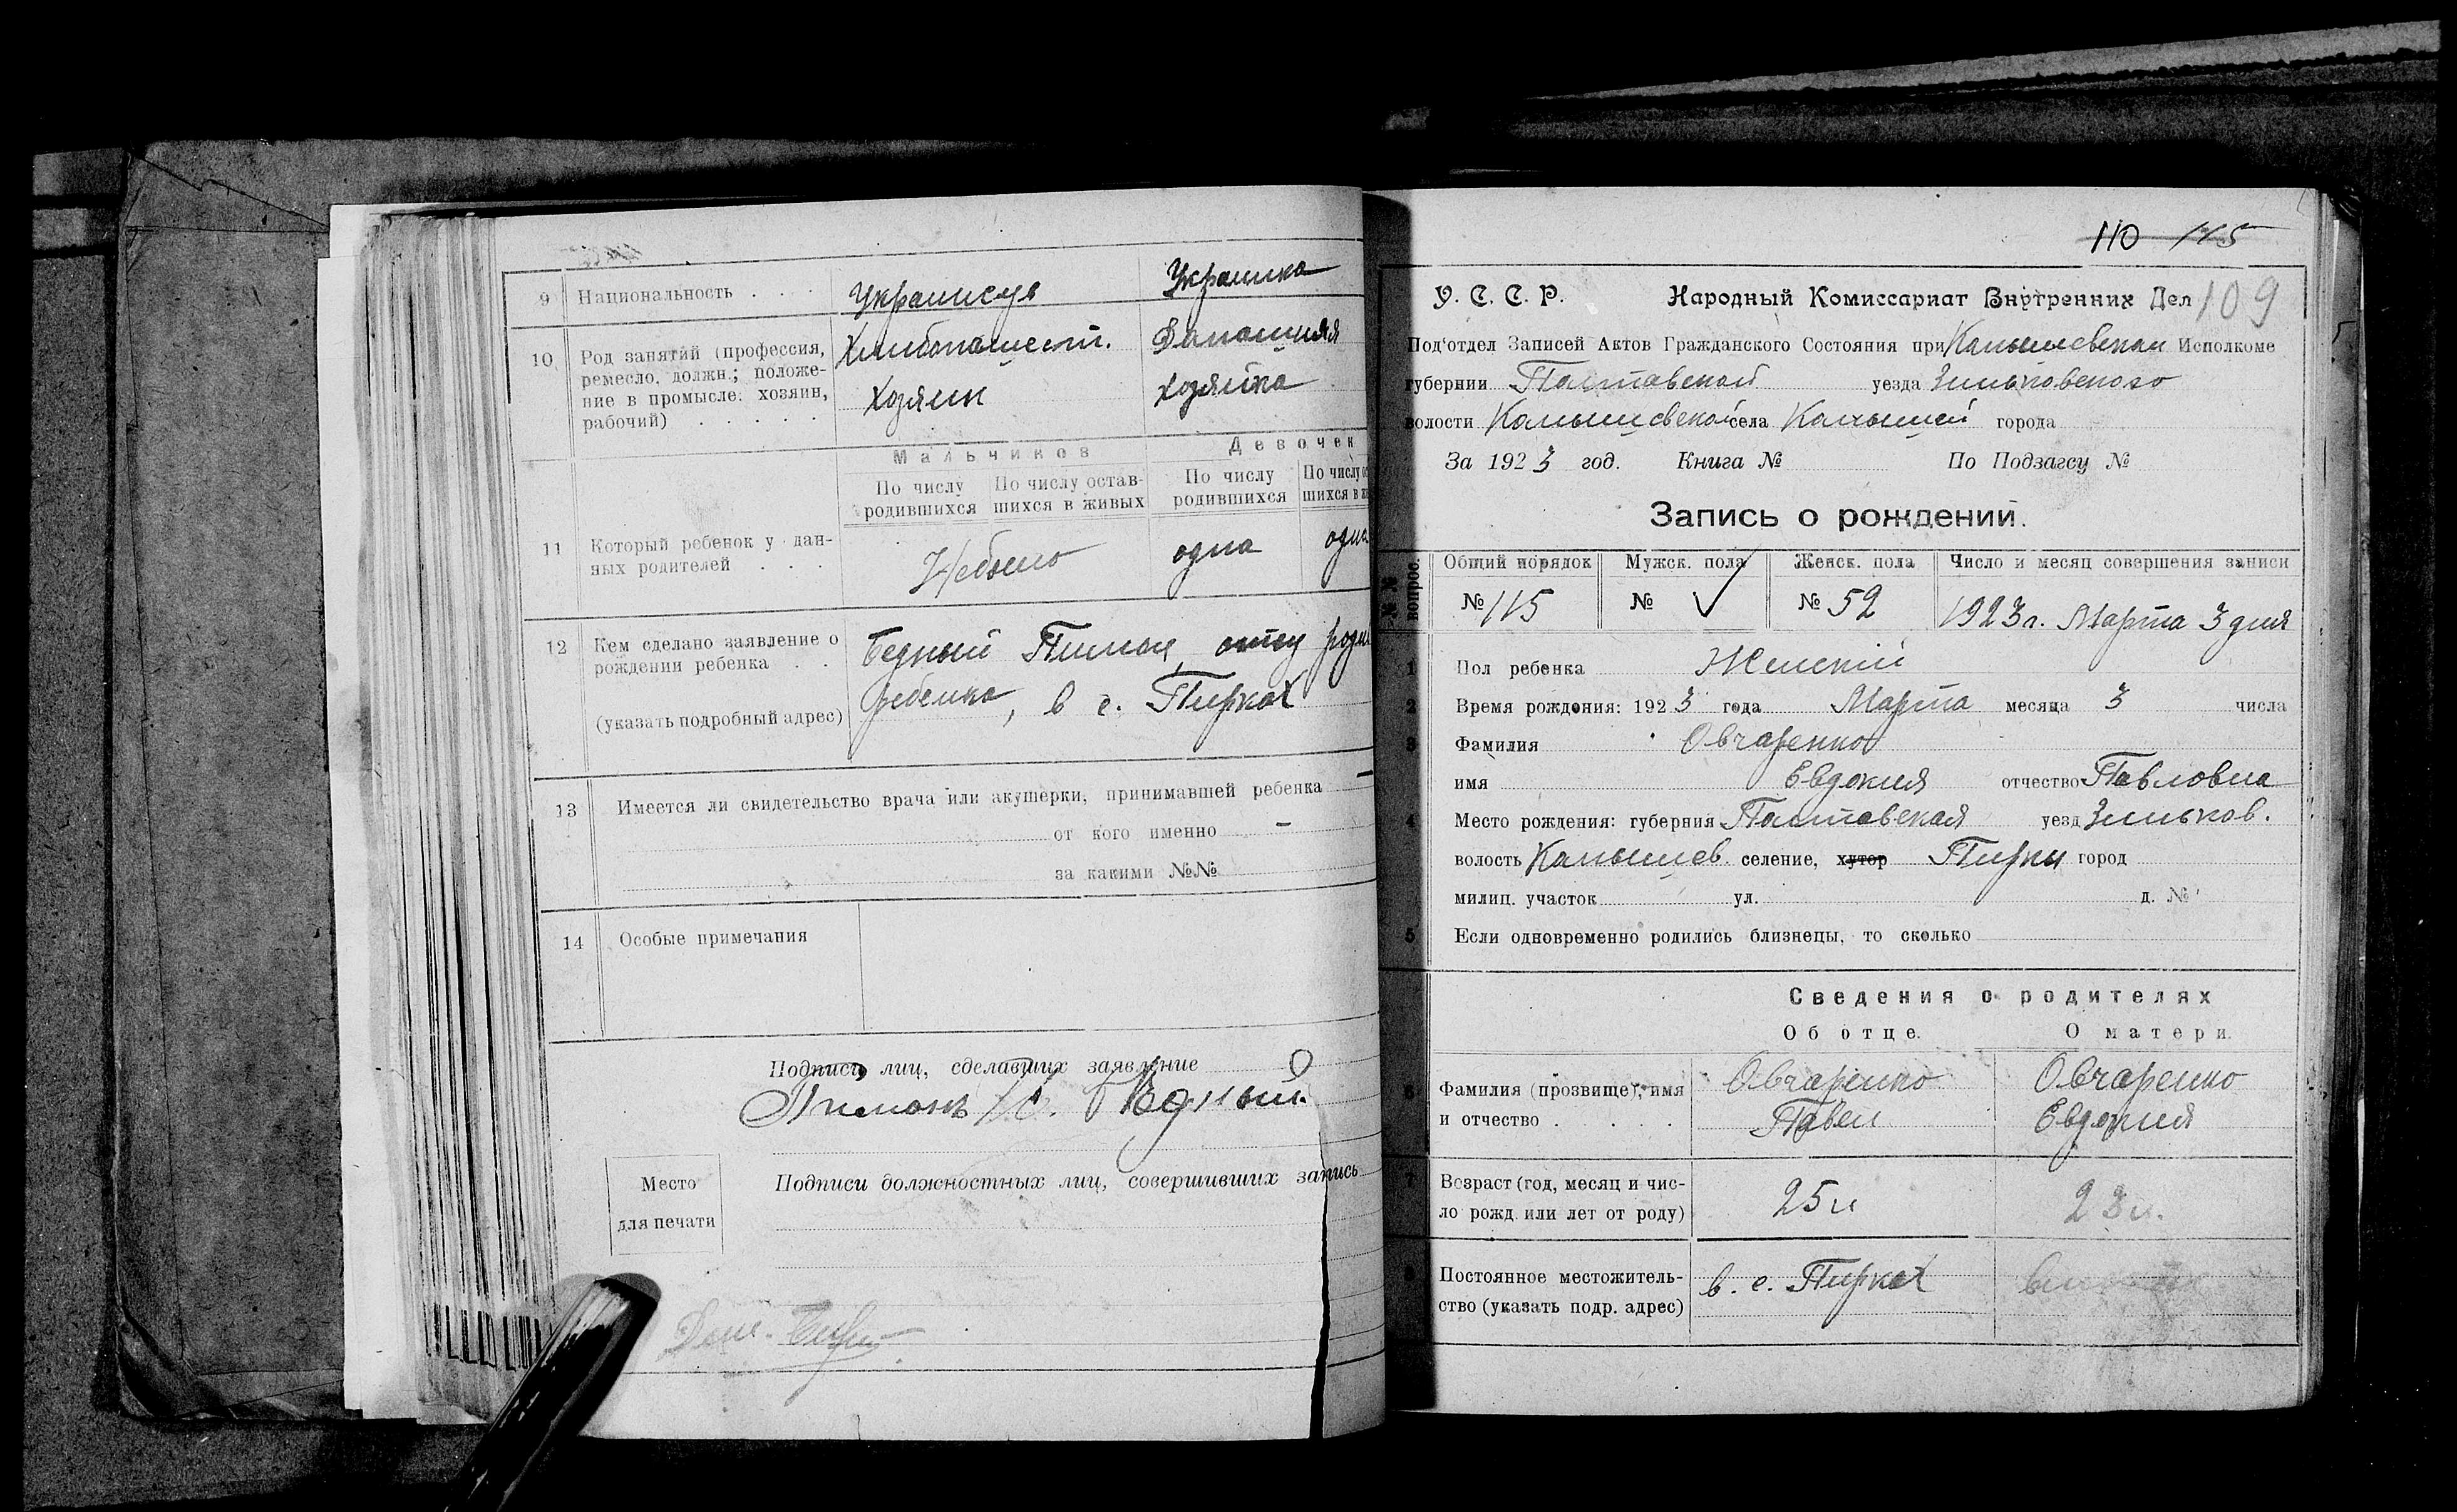 9 Национальность Украинец Украинка
10 Род занятий (профессия, Хлебопашест. Домашняя
ремесло, должн.; положе-
ние в промысле: хозяин, Хозяин хозяйка
рабочий)
Мальчиков Девочек
По числу По числу остав- По числу По числу о
родившихся шихся в живых родившихся шихся в ж
11 Который ребенок у дан- Небыло одна одна
ных родителей
12 Кем сделано заявление о Бедный Пимон, отец роди
рождении ребенка
ребенка, в с. Пирках
(указать подробный адрес)
13 Имеется ли свидетельство врача или акушерки, принимавшей ребенка —
от кого именно —
за какими №№
14 Особые примечания
Подписи лиц, сделавших заявление
Пимонъ Бедный
Место
для печати
Подписи должностных лиц, совершивших запись
110 115
У. С. С. Р. Народный Комиссариат Внутренних Дел 109
Под'отдел Записей Актов Гражданского Состояния при Камышевском Исполкоме
губернии Полтавской уезда Зиньковского
волости Камышевской села Камышей города
За 1923 год. Книга № По Подзагсу №
Запись о рождений.
№№ вопрос. Общий порядок Мужск. пола Женск. пола Число и месяц совершения записи
№ 115 № № 52 1923 г. Марта 3 дня
1 Пол ребенка Женский
2 Время рождения: 1923 года Марта месяца 3 числа
3 Фамилия Овчаренко
имя Евдокия отчество Павловна
4 Место рождения: губерния Полтавская уезд Зиньков.
волость Камышев. селение, хутор Пирки город
милиц. участок ул. д. №
5 Если одновременно родились близнецы, то сколько
Сведения о родителях
Об отце. О матери.
6 Фамилия (прозвище), имя Овчаренко Овчаренко
и отчество Павел Евдокия
7 Возраст (год, месяц и чис- 25 л. 23 л.
ло рожд. или лет от роду)
8 Постоянное местожитель- в. с. Пирках
ство (указать подр. адрес)